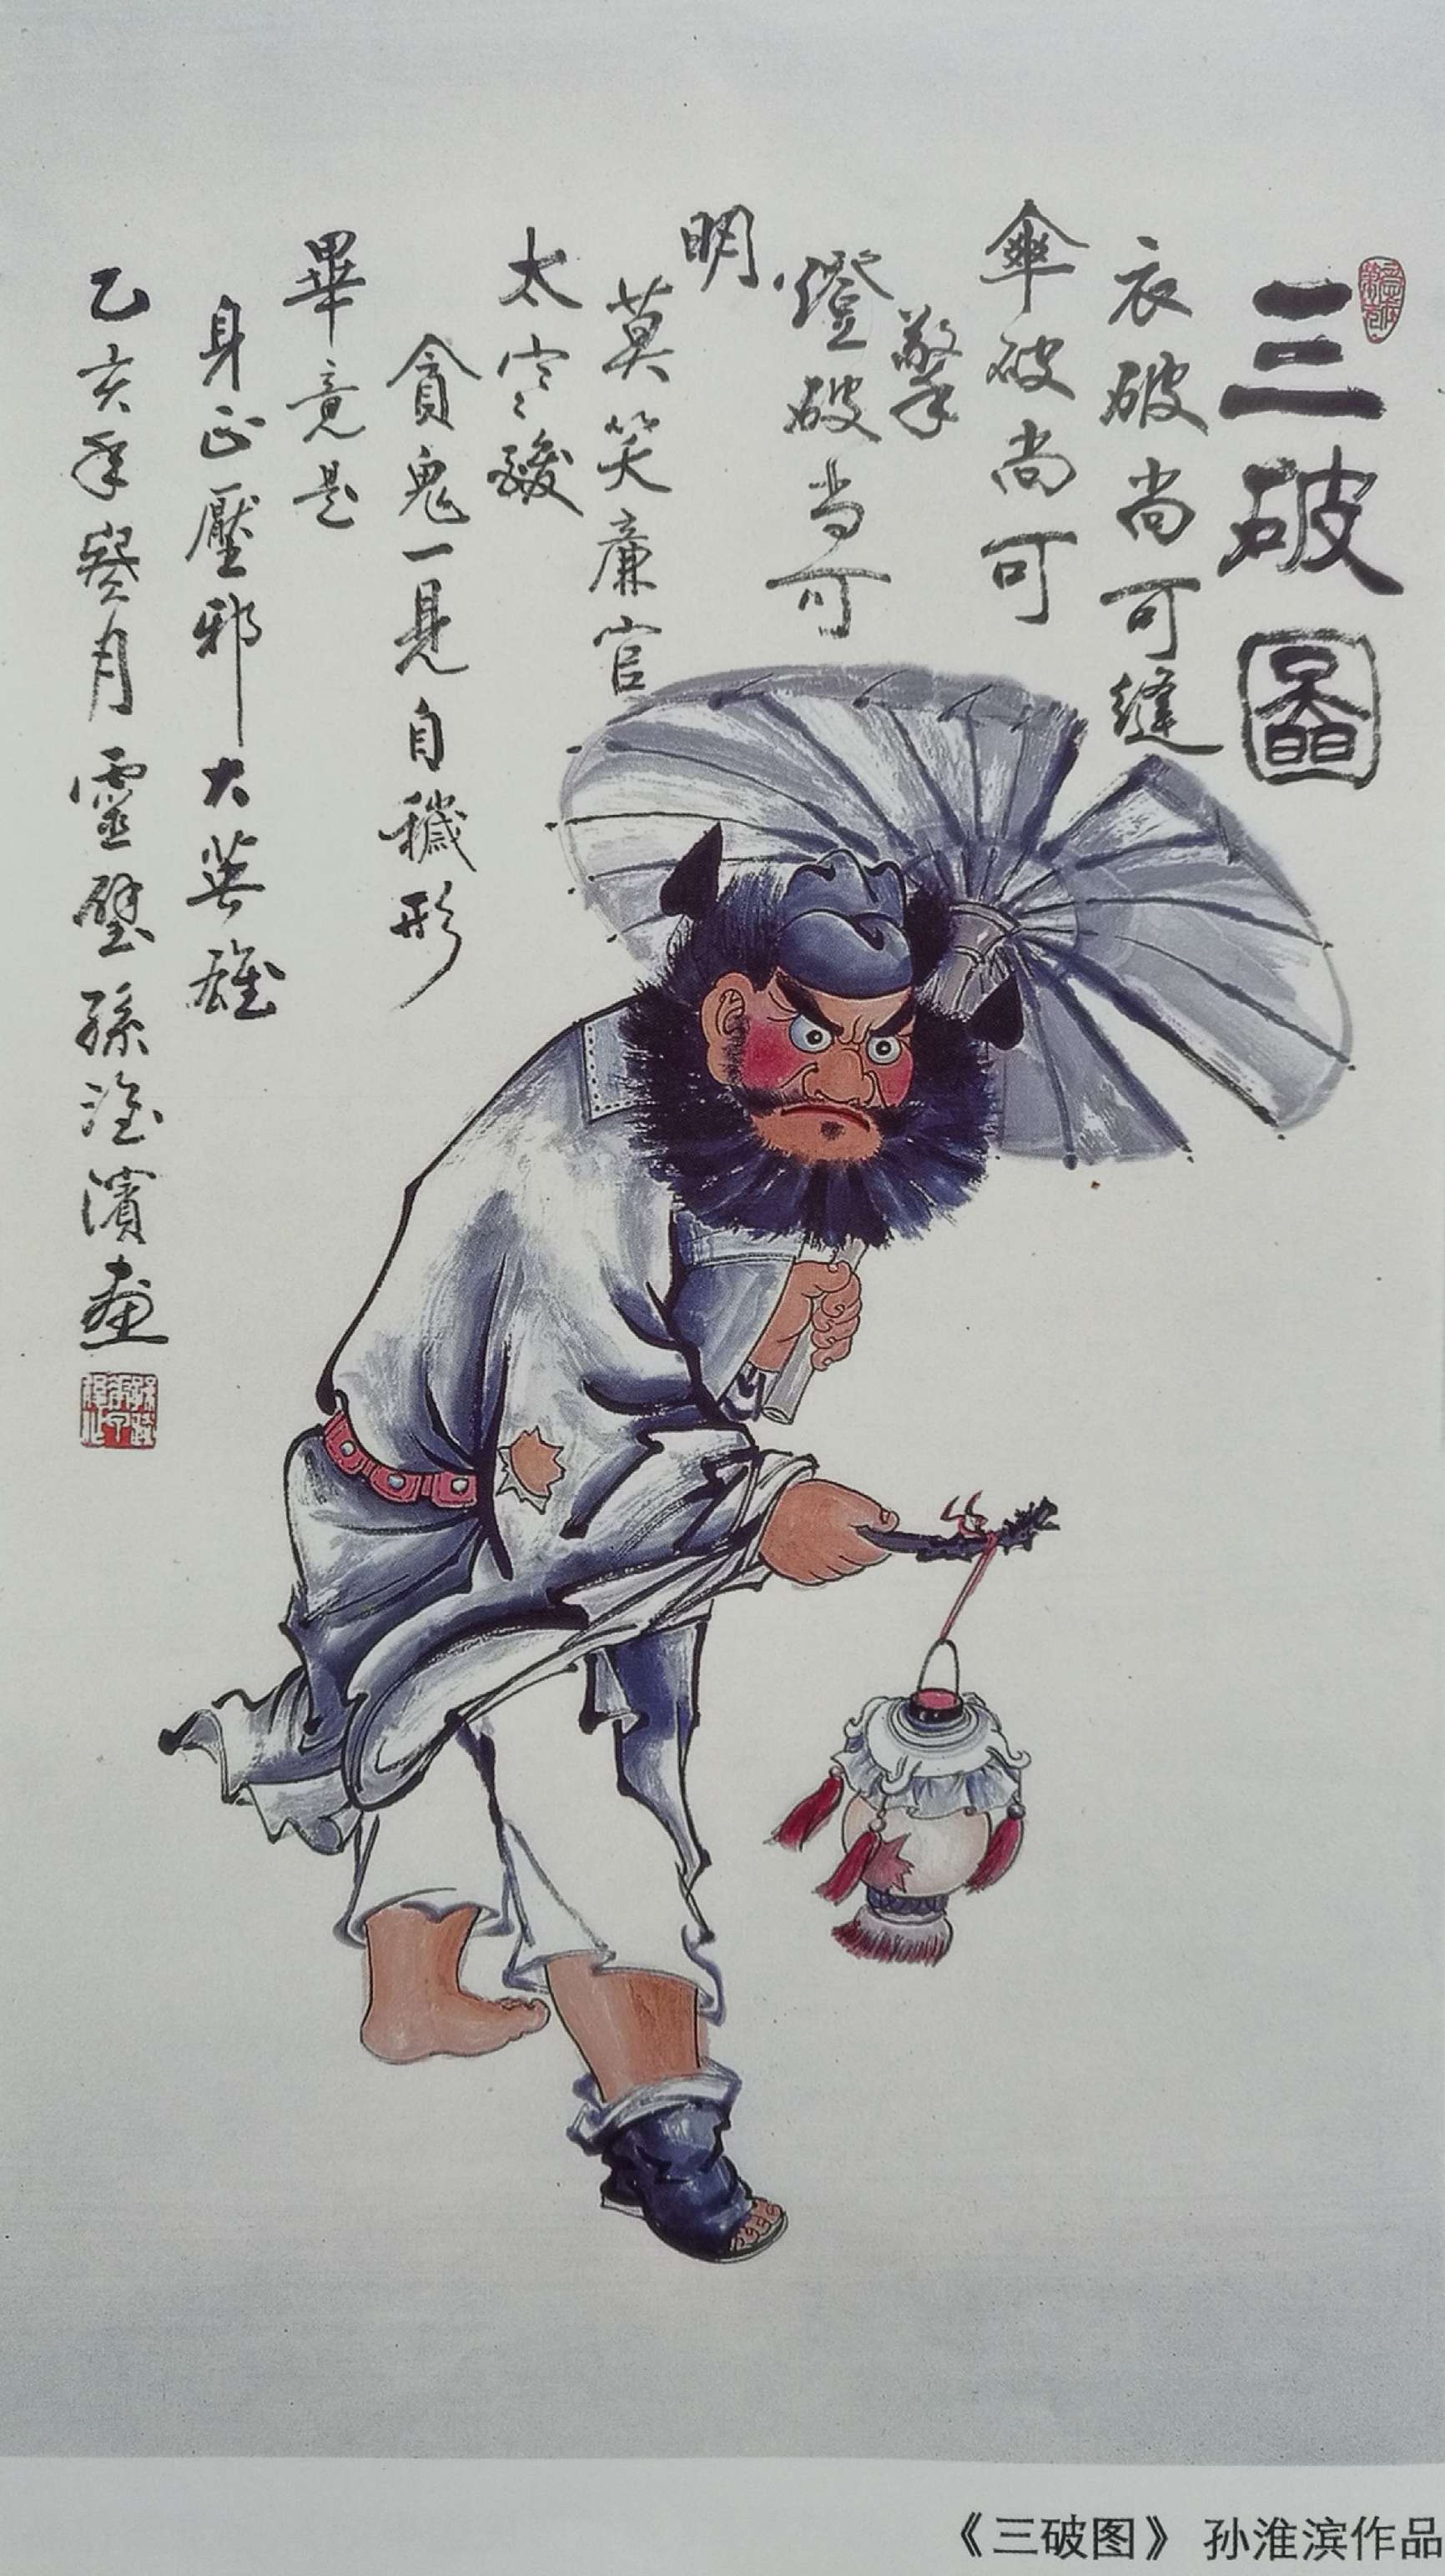 三破圖
衣破尚可縫
傘破尚可
擎
燈破尚可
明
莫笑廉官
太寒酸
貪鬼一見自穢形
畢竟是
身正壓邪大英雄
乙亥年葵月靈璧孫淮濱画
《三破图》 孙淮滨作品